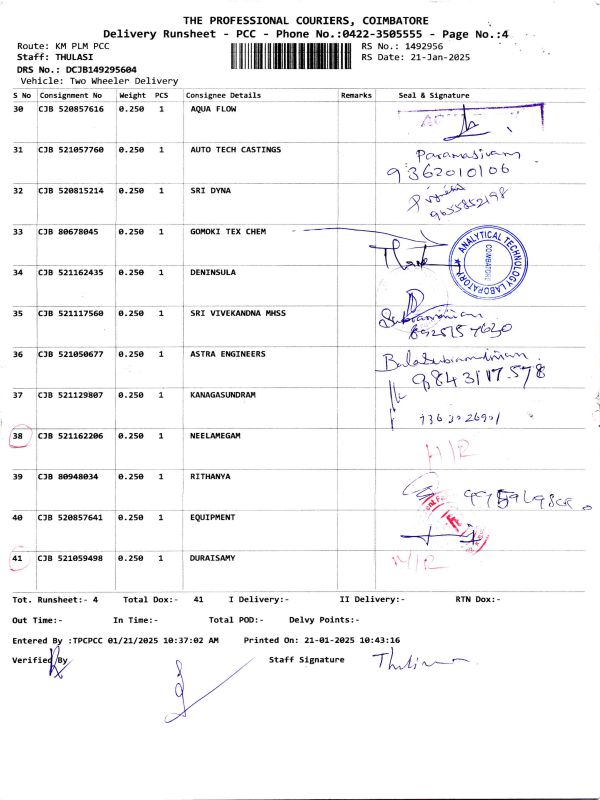 THE PROFESSIONAL COURIERS, COIMBATORE
Delivery Runsheet - PCC - Phone No.:0422-3505555 - Page No.:4
Route: KM PLM PCC RS No.: 1492956
Staff: THULASI RS Date: 21-Jan-2025
DRS No.: DCJB149295604
Vehicle: Two Wheeler Delivery
S No Consignment No Weight PCS Consignee Details Remarks Seal & Signature
30 CJB 520857616 0.250 1 AQUA FLOW
31 CJB 521057760 0.250 1 AUTO TECH CASTINGS Paramasivam
9362010106
32 CJB 520815214 0.250 1 SRI DYNA
9655852198
33 CJB 80678045 0.250 1 GOMOKI TEX CHEM
ANALYTICAL TECHNOLOGY LABORATORY COIMBATORE
34 CJB 521162435 0.250 1 DENINSULA
35 CJB 521117560 0.250 1 SRI VIVEKANDNA MHSS Subramanian
8925157630
36 CJB 521050677 0.250 1 ASTRA ENGINEERS Balasubramanian
9843117578
37 CJB 521129807 0.250 1 KANAGASUNDRAM
38 CJB 521162206 0.250 1 NEELAMEGAM
39 CJB 80948034 0.250 1 RITHANYA
40 CJB 520857641 0.250 1 EQUIPMENT
41 CJB 521059498 0.250 1 DURAISAMY
Tot. Runsheet:- 4 Total Dox:- 41 I Delivery:- II Delivery:- RTN Dox:-
Out Time:- In Time:- Total POD:- Delvy Points:-
Entered By :TPCPCC 01/21/2025 10:37:02 AM Printed On: 21-01-2025 10:43:16
Verified By Staff Signature